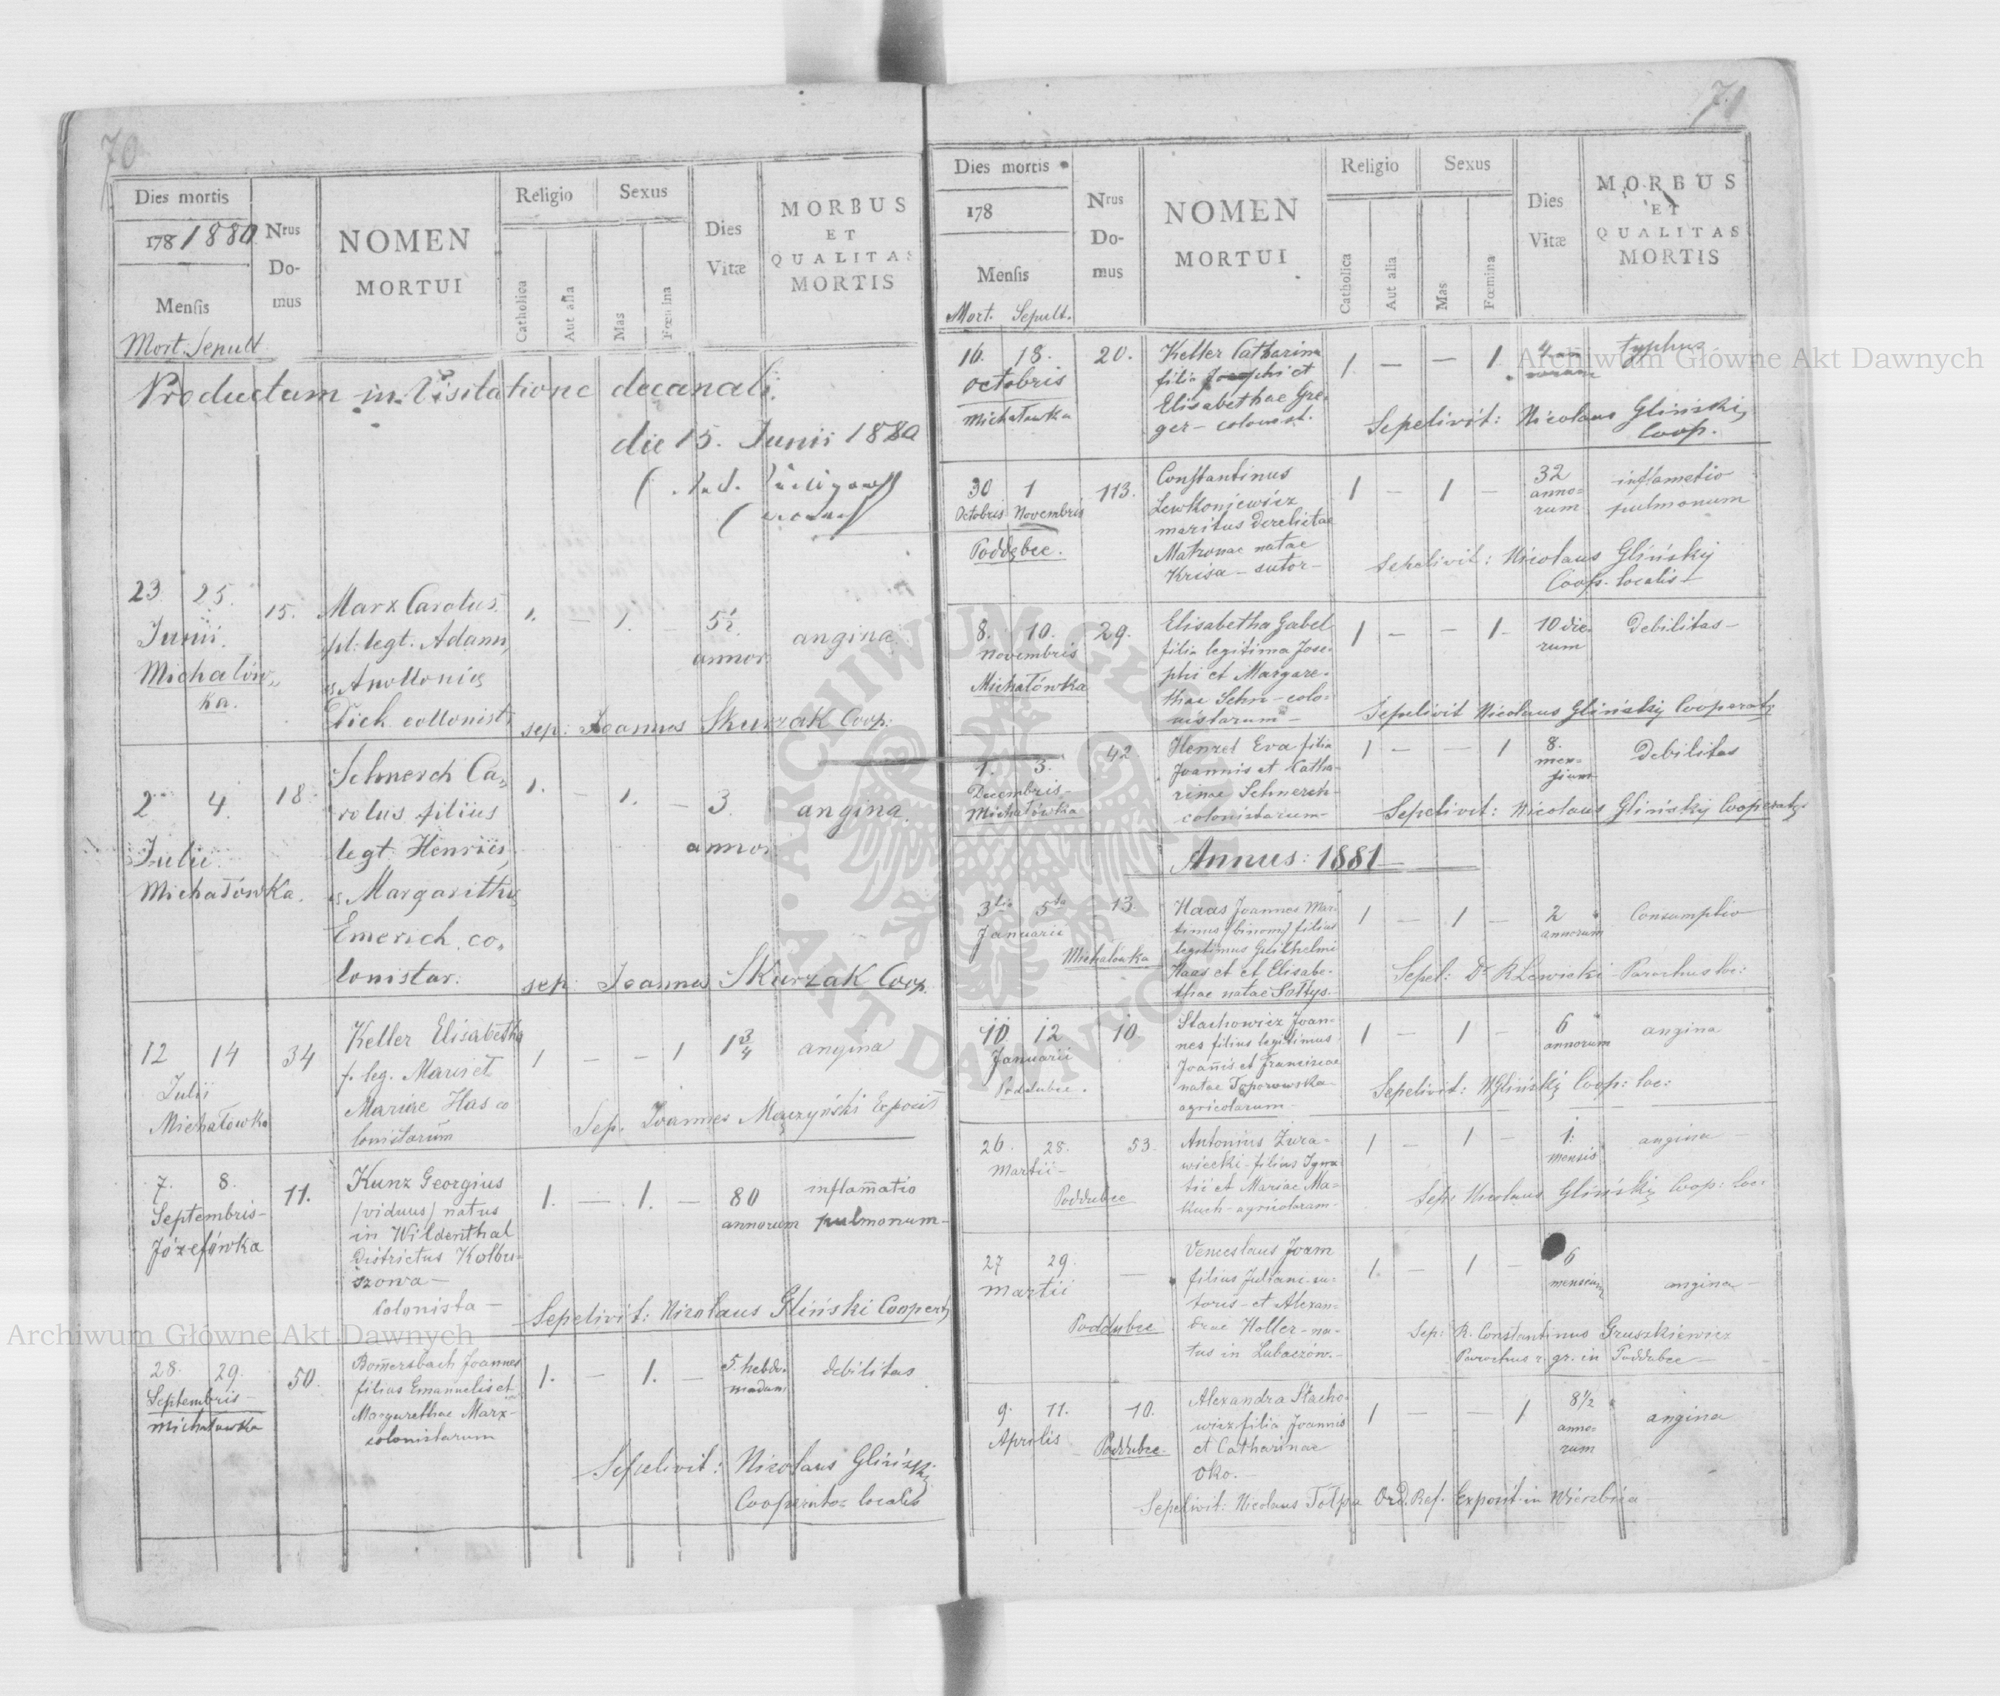 70
Dies mortis
178 1880
Mensis
Mort. Sepult
Nrus
Do-
mus
NOMEN
MORTUI
Religio
Catholica
Aut alia
Sexus
Mas
Fœmina
Dies
Vitæ
MORBUS
ET
QUALITAS
MORTIS
Productum in Visitatione decanali.
die 15. Junii 1880
23. 25.
Junii.
Michałów„
ka.
15.
Marx Carolus
fil: legt. Adami
Apolloniae
colonist.
1. — 1. —
5½
annor
angina.
sep: Joannes Skurzak Coop:
2 4.
Julii
Michałówka.
18.
Schnerch Ca„
rolus filius
legt. Henrici
Margarithae
Emerich co„
lonistar.
1. — 1. —
3.
annor
angina.
sep: Joannes Skurzak Coop.
12 14
Julii
Michałowka
34
Keller Elisabetha
f. leg. et
Mariae Has co
lonistarum
1 — — 1
1¾
angina
Sep. Joannes Moczyński Exposit
7. 8.
Septembris-
Józefówka
11.
Kunz Georgius
/viduus/ natus
in Wildenthal
Districtus Kolbu-
szowa —
Colonista —
1. — 1. —
80
annorum
inflam̄atio
pulmonum —
Sepelivit: Nicolaus Gliński Cooperat
28. 29.
Septembris —
Michałowka
50.
Bom̄ersbach Joannes
filius Emanuelis et
Margarethae Marx-
colonistarum
1. — 1. —
5. hebdo-
madum
debilitas
Sepelivit: Nicolaus Gliński
Cooperator localis
71
Dies mortis
178
Mensis
Mort. Sepult.
Nrus
Do-
mus
NOMEN
MORTUI
Religio
Catholica
Aut alia
Sexus
Mas
Fœmina
Dies
Vitæ
MORBUS
ET
QUALITAS
MORTIS
16. 18.
octobris
Michałowka
20.
Keller Catharina
filia Josephi et
Elisabethae Gre-
ger — colonist.
1. — — 1.
4
typhus
Sepelivit: Nicolaus Gliński,
Coop.
30 1
Octobris Novembris
Poddębce.
113.
Constantinus
Lewkoniewicz
maritus derelictae
Matronae natae
Krisa — sutor —
1 — 1 —
32
anno-
rum
inflametio
pulmonum
Sepelivit: Nicolaus Glińskij
Coop. localis
8. 10.
Novembris
Michałówka
29.
Elisabetha Gabel
filia legitima Jose-
phi et Margare-
thae Schn — colo-
nistarum —
1 — — 1.
10 die-
rum
Debilitas —
Sepelivit Nicolaus Glińskij Cooperator
1. 3.
Decembris —
Michałówka
42
Henzel Eva filia
Joannis et Catha-
rinae Schnerch-
colonistarum —
1 — — 1
8.
men-
sium
Debilitas
Sepelivit: Nicolaus Glińskij Cooperator
Annus: 1881
3tia 5ta
Januarii
Michałówka
13
Haas Joannes Mar-
tinus /binom/ filius
legitimus Guilhelmi
Haas et et Elisabe-
thae natae Soltys.
1 — 1 —
2
annorum
Consumptio
Sepel: Dr R Lewicki — Parochus loc:
10 12
Januarii
Poddubce.
10
Stachowicz Joan-
nes filius legitimus
Joan̄is et Franciscae
natae Toporowska-
agricolarum —
1 — 1 —
6
annorum
angina
Sepelivit: NGlińskij Coop: loc:
26. 28.
Martii —
Poddubce
53.
Antonius Żura-
wiecki — filius Igna
tii et Mariae Ma-
kuch — agricolarum —
1 — 1 —
1.
mensis
angina
Sep: Nicolaus Glińskij Coop: loc:
27 29.
Martii
Poddubce
—
Venceslaus Joam
filius Julianae su-
toris — et Alexan-
drae Holler — na-
tus in Lubaczów. —
1. — 1 —
6
mensium
angina —
Sep: R. Constantinus Gruszkiewicz
Parochus r. gr. in Poddubce —
9. 11.
Aprilis
Poddubce.
10.
Alexandra Stacho-
wicz filia Joannis
et Catharinae
Oko. —
1 — — 1
8½
anno-
rum
angina
Sepelivit: Nicolaus Ord. Ref. Exposit. in Wierzbica —
Archiwum Główne Akt Dawnych
Archiwum Główne Akt Dawnych
ARCHIWUM GŁÓWNE
AKT DAWNYCH